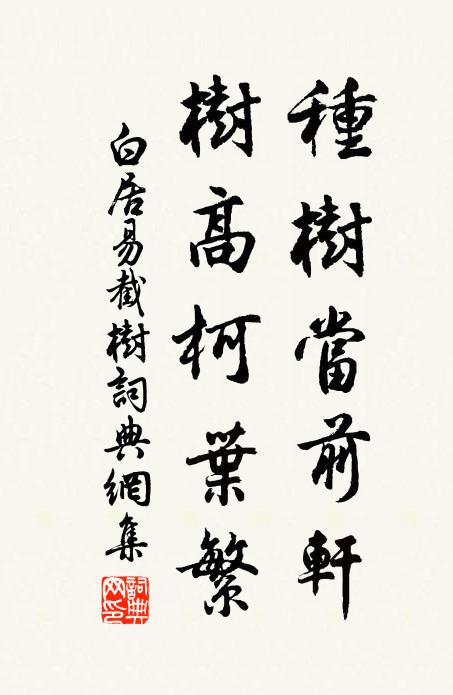 種樹當前軒
樹高柯葉繁
白居易截樹詞典網集
詞典網印